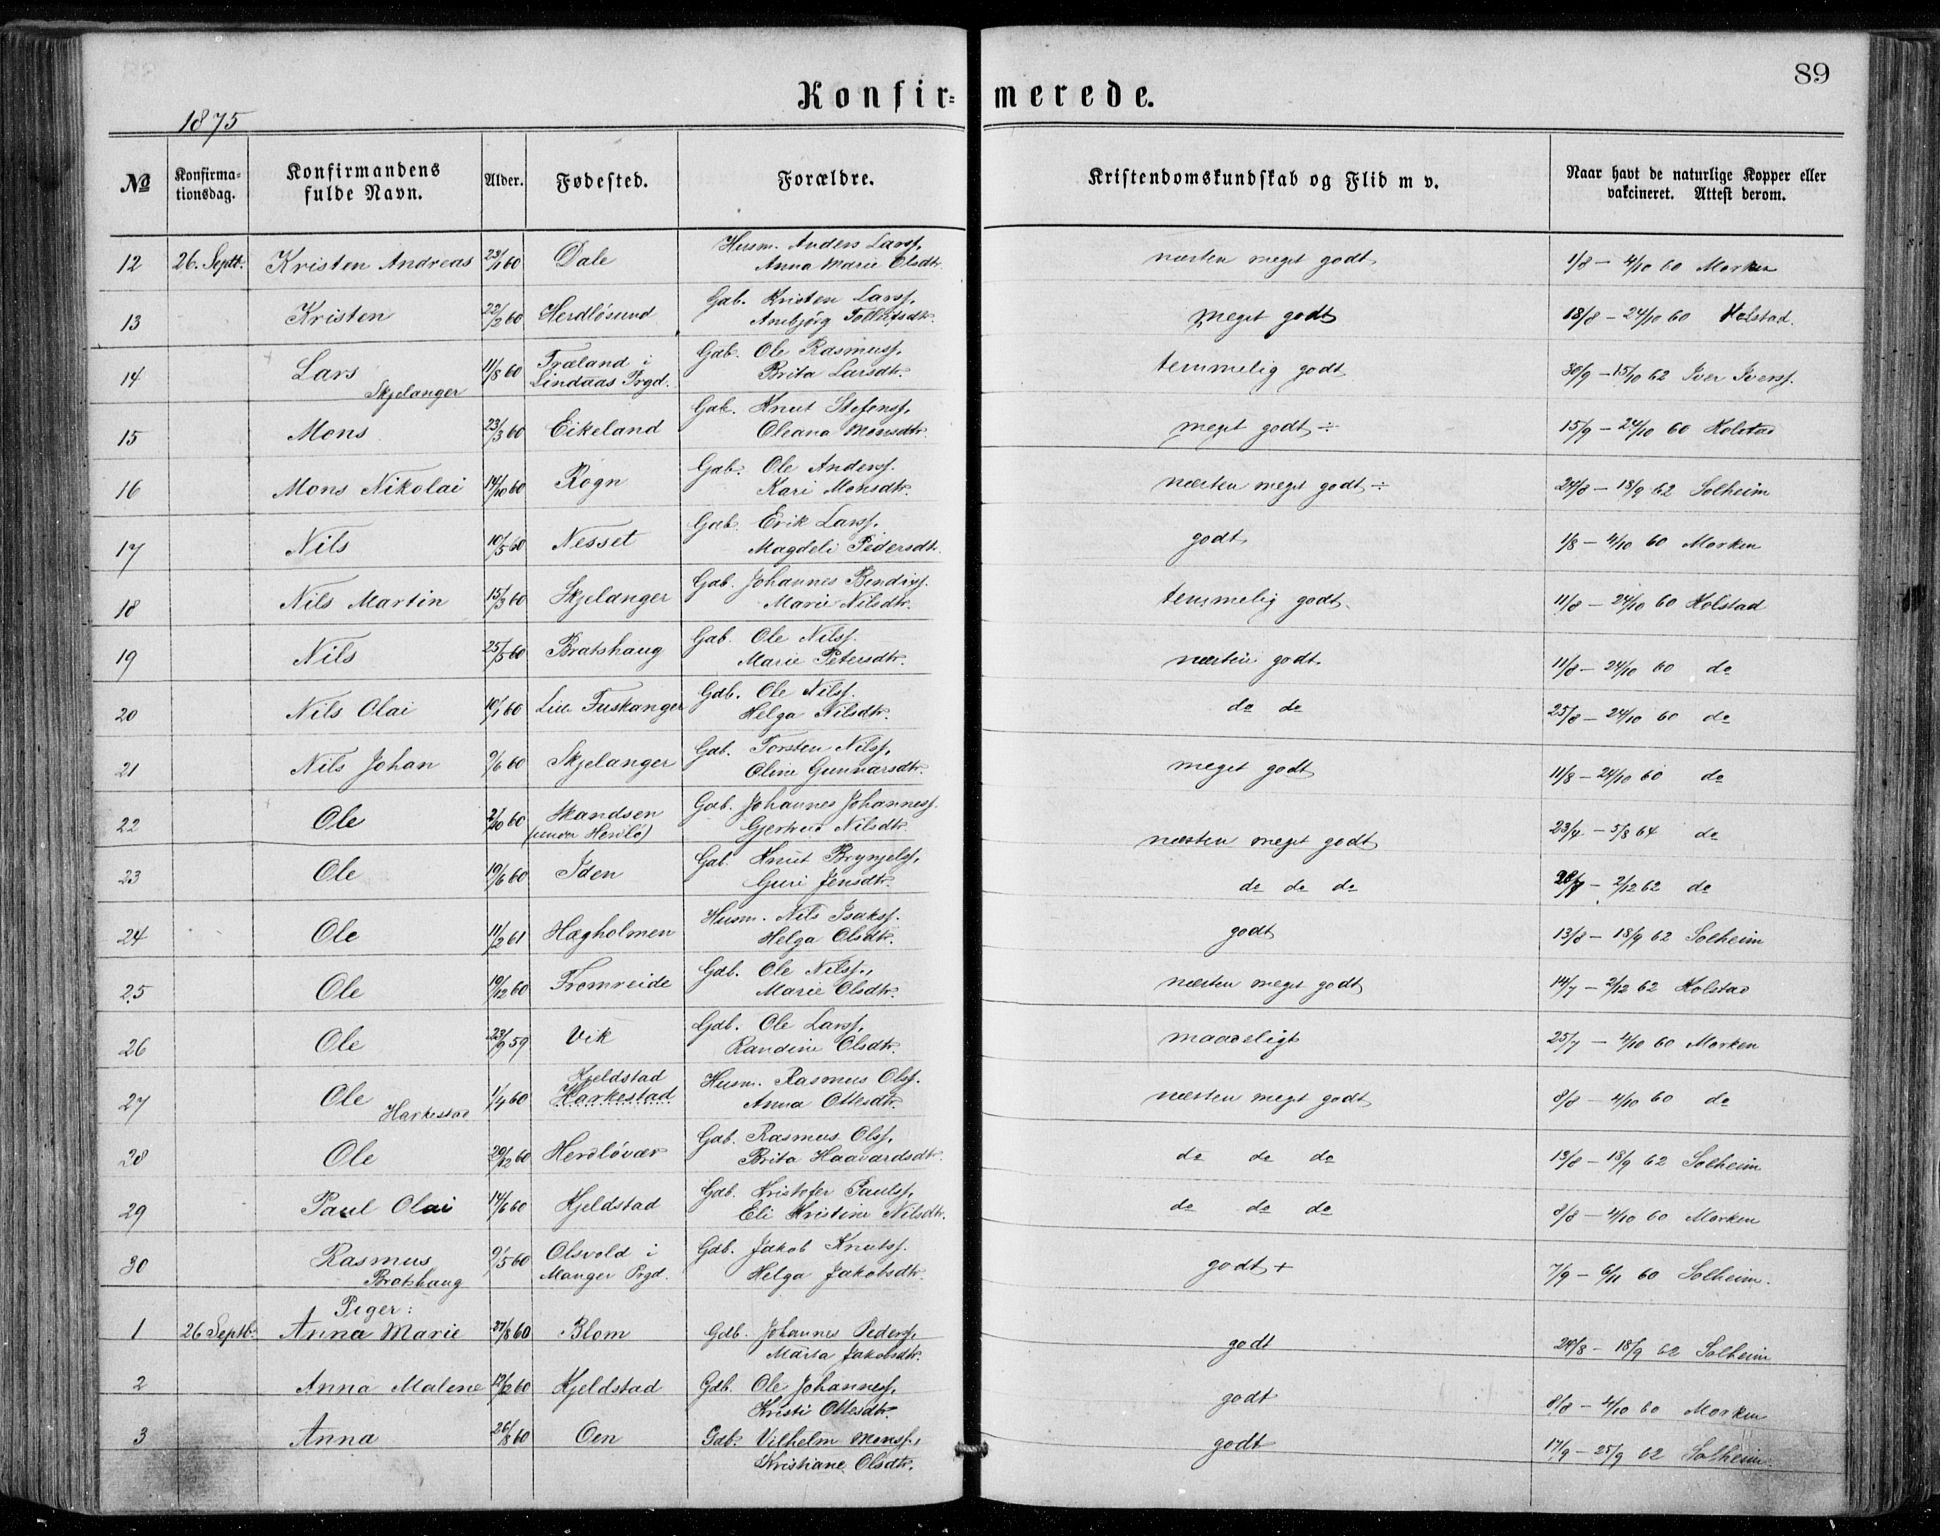 89
Konfir= merede.
1875
No Konfirma-tionsdag. Konfirmandens fulde Navn. Alder. Fødested. Forældre. Kristendomskundskab og Flid m v. Naar havt de naturlige Kopper eller vakcineret. Attest derom.
12 26. Septb. Kristen Andreas 23/1 60 Dale Husm. Anders Larss. næsten meget godt 1/8 – 4/10 60 Morken
Anna Marie Olsdtr.
13 Kristen 22/2 60 Herdløsund Gab. Kristen Larss. meget godt 18/8 – 24/10 60 Holstad.
Anbjörg Tollefsdtr.
14 Lars 11/8 60 Træland i Gab. Ole Rasmuss. temmelig godt 30/9 – 15/10 62 Iver Iverss.
Skjelanger Lindaas Prgd. Brita Larsdtr.
15 Mons 23/3 60 Eikeland Gab. Knut Stefenss. meget godt ÷ 15/9 – 24/10 60 Holstad
Oleana Monsdtr.
16 Mons Nikolai 14/10 60 Rogn Gab. Ole Anderss. næsten meget godt ÷ 24/8 – 18/9 62 Solheim
Kari Monsdtr.
17 Nils 10/5 60 Nesset Gab. Erik Larss. godt 1/8 – 4/10 60 Morken
Magdeli Pedersdtr.
18 Nils Martin 15/3 60 Skjelanger Gab. Johannes Bendixs. temmelig godt. 11/8 – 24/10 60 Holstad
Marie Nilsdtr.
19 Nils 25/5 60 Bratshaug Gab. Ole Nilss. næsten godt 11/8 – 24/10 60 do
Marie Petersdtr.
20 Nils Olai 10/1 60 Lille Fuskanger Gdb. Ole Nilss. do do 25/8 – 24/10 60 do
Helga Nilsdtr.
21 Nils Johan 9/6 60 Skjelanger Gdb. Torsten Nilss. meget godt 11/8 – 24/10 60 do
Oline Gunnarsdtr.
22 Ole 2/10 60 Skandsen Gab. Johannes Johanness. næsten meget godt 23/4 – 5/8 64 do
(under Herdlø) Gjertrud Nilsdtr.
23 Ole 19/6 60 Iden Gab. Knut Brynjelss. do do do – 2/12 62 do
Guri Jensdtr.
24 Ole 11/2 61 Hægholmen Husm. Nils Isakss. godt 13/8 – 18/9 62 Solheim
Helga Olsdtr.
25 Ole 19/12 60 Tromreide Gdb. Ole Nilss. næsten meget godt 14/7 – 2/12 62 Holstad
Marie Olsdtr.
26 Ole 23/9 59 Vik Gdb. Ole Larss. maadeligt 25/7 – 4/10 60 Morken
Randine Olsdtr.
27 Ole 1/4 60 Kjeldstad Husm. Rasmus Olss. næsten meget godt 8/8 – 4/10 60 do
Harkestad Harkestad Anna Ottesdtr.
28 Ole 20/12 60 Herdlövær Gdb. Rasmus Olss. do do do 13/8 – 18/9 62 Solheim
Brita Haavardsdtr.
29 Paul Olai 14/6 60 Kjeldstad Gdb. Kristofer Paulss. do do do 8/8 – 4/10 60 Morken
Eli Kristine Nilsdtr.
30 Rasmus 9/5 60 Olsvold i Gdb. Jakob Knutss. godt + 7/9 – 6/11 60 Solheim.
Bratshaug Manger Prgd. Helga Jakobsdtr.
Piger:
1 26 Septb. Anna Marie 27/8 60 Blom Gdb. Johannes Pederss. godt 24/8 – 18/9 62 Solheim
Marta Jakobsdtr.
2 Anna Malene 12/12 60 Kjeldstad Gdb. Ole Johanness. godt 8/8 – 4/10 60 Morken
Kristi Ottesdtr.
3 Anna 26/8 60 Oen Gdb. Vilhelm Monss. godt 17/9 – 25/9 62 Solheim
Kristiane Olsdtr.